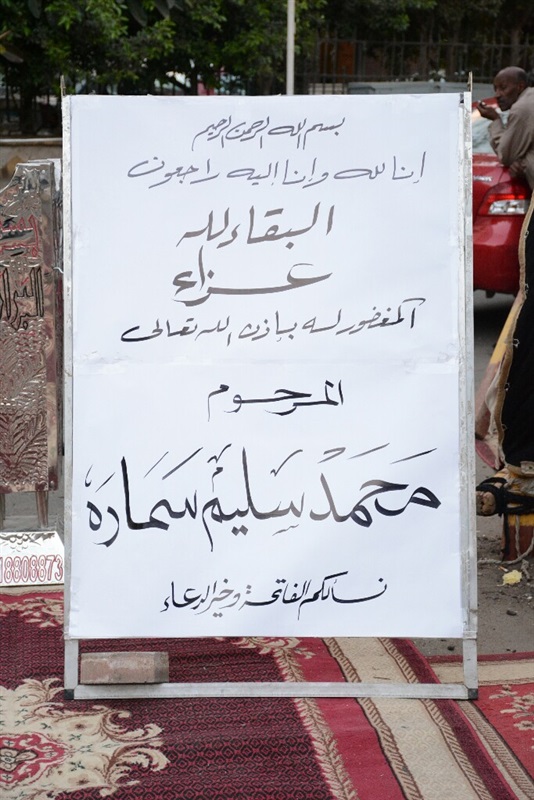 بسم الله الرحمن الرحيم
إنا لله وإنا إليه راجعون
البقاء لله
عزاء
المغفور له بإذن الله تعالى
المرحوم
محمد سليم سمارة
نسألكم الفاتحة وخير الدعاء
18808873